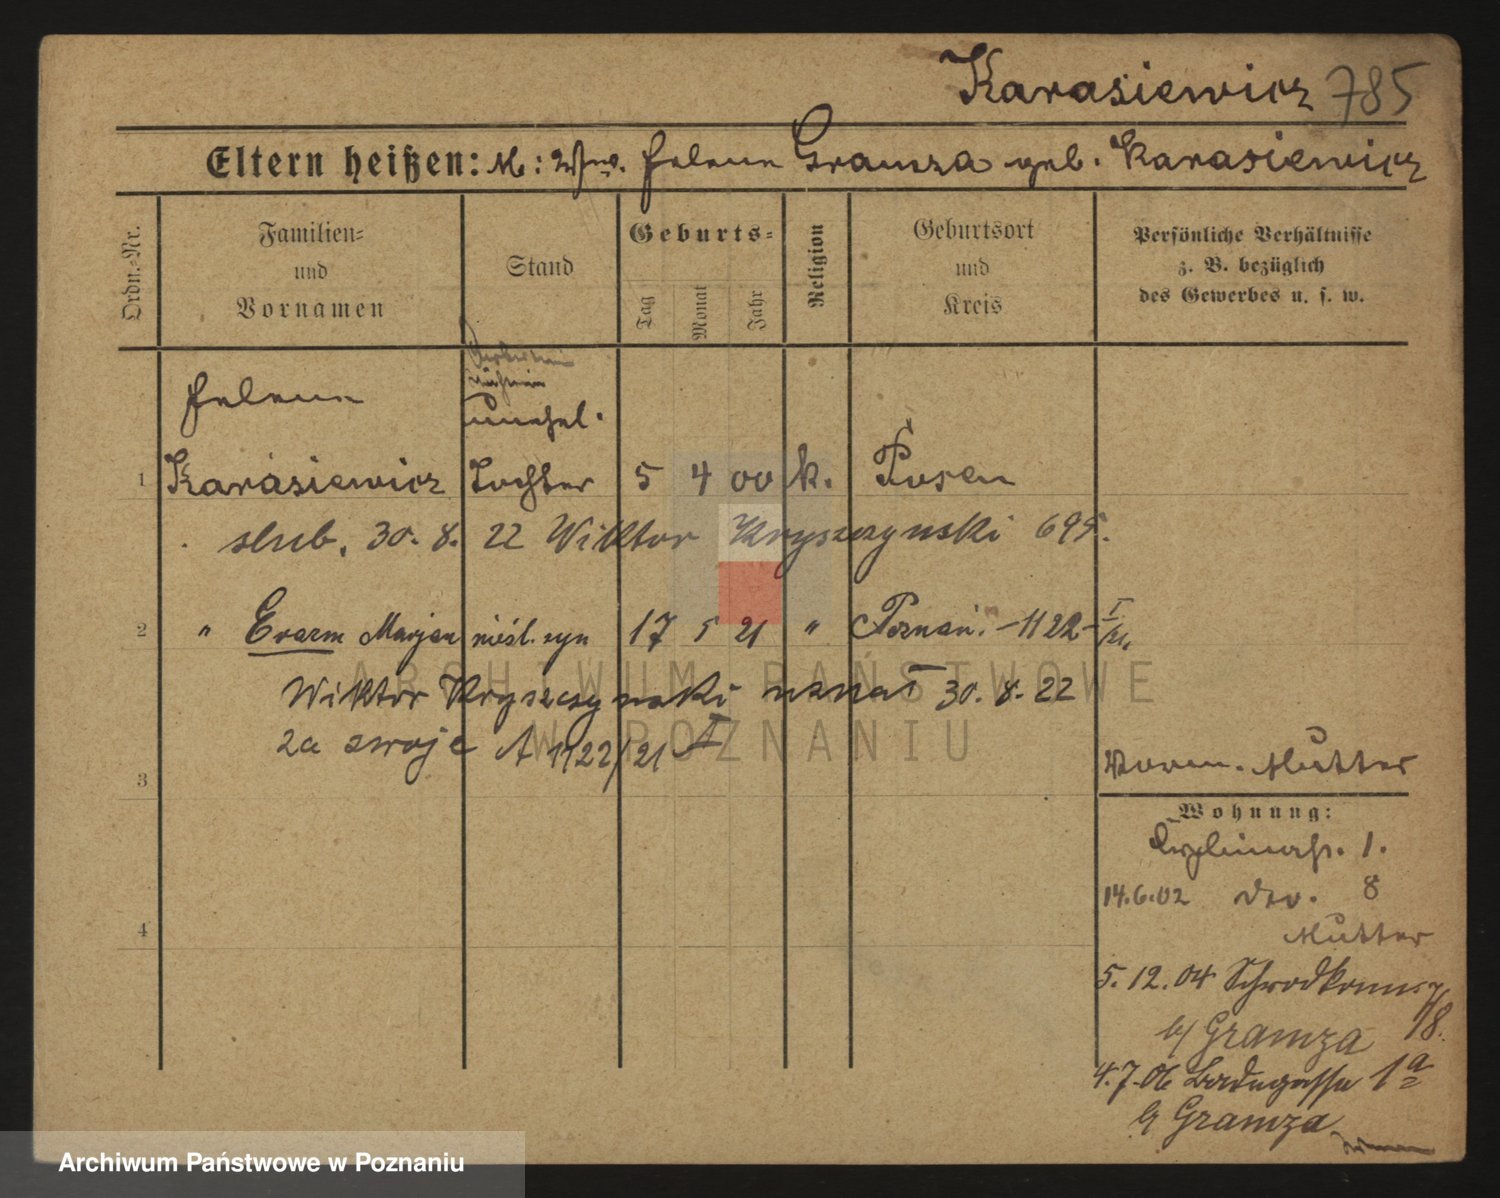 Karasiewicz 785
Eltern heißen: M: Wwe. Helene Gramza geb. Karasiewicz
Ordn.-Nr.
Familien-
und
Vornamen
Stand
Geburts-
Tag
Monat
Jahr
Religion
Geburtsort
und
Kreis
Persönliche Verhältnisse
z. B. bezüglich
des Gewerbes u. s. w.
Arbeiterin
Helene
unehel.
1 Karasiewicz Tochter 5 4 00 k. Posen
slub. 30. 8. 22 Wiktor Kryszczynski 695.
2 " Erazm Marjan nieśl. syn 17 5 21 " Poznań. - 1122 - I/21
Wiktor Kryszczynski uznał 30. 8. 22
za swoje A 1122/21 I
3
4
Vorm. Mutter
Wohnung:
1.
14.6.02 Dto. 8
Mutter
5. 12. 04 Schrodkamarkt 7/8.
b/ Gramza
4. 7. 06 Badegasse 1a
b/ Gramza
ARCHIWUM PAŃSTWOWE
W POZNANIU
Archiwum Państwowe w Poznaniu